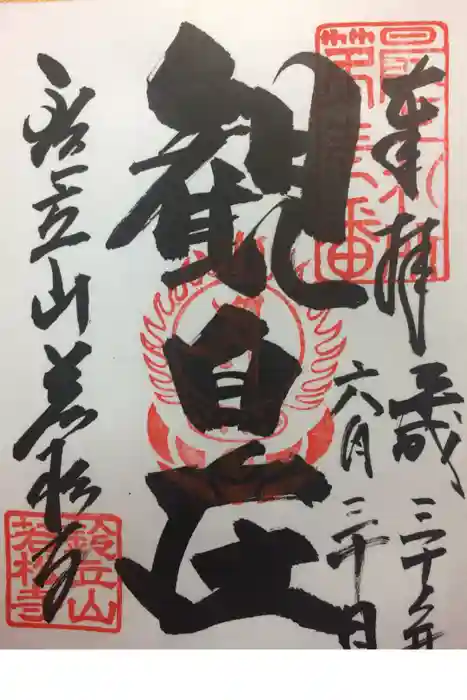 奉拝
平成三十年
六月三十日
第壱番
観自在
鈴立山若松寺
鈴立山
若松寺